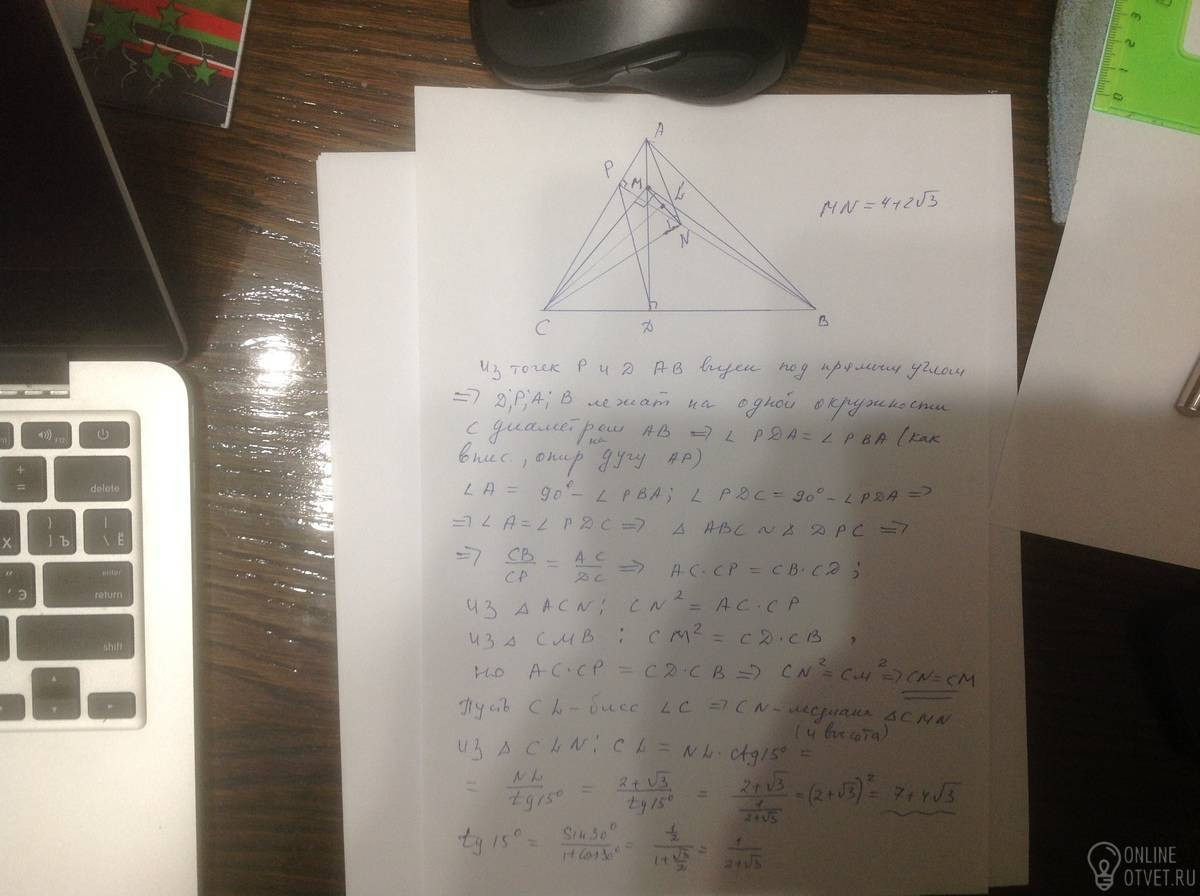 A
P
M
L
N
C
D
B
MN = 4+2√3
Из точек P и D AB виден под прямым углом
=> D; P; A; B лежат на одной окружности
с диаметром AB => ∠ PDA = ∠ PBA (как
впис., опир на дугу AP)
∠A = 90° - ∠ PBA; ∠ PDC = 90° - ∠PDA =>
=> ∠A = ∠ PDC => Δ ABC ~ Δ DPC =>
=> CB/CP = AC/DC => AC·CP = CB·CD;
Из Δ ACN: CN² = AC·CP
Из Δ CMB: CM² = CD·CB,
но AC·CP = CD·CB => CN² = CM² => CN=CM
Пусть CL - бисс ∠C => CN - медиана ΔCMN
(и высота)
Из Δ CLN: CL = NL·ctg15° =
= NL/tg15° = (2+√3)/tg15° = (2+√3)/(1/(2+√3)) = (2+√3)² = 7+4√3
tg15° = sin30°/(1+cos30°) = (1/2)/(1+√3/2) = 1/(2+√3)
F11
F12
+
=
delete
}
Ъ
|
\
Ё
Х
"
Э
enter
return
shift
0
1
2
3
ONLINE
OTVET.RU